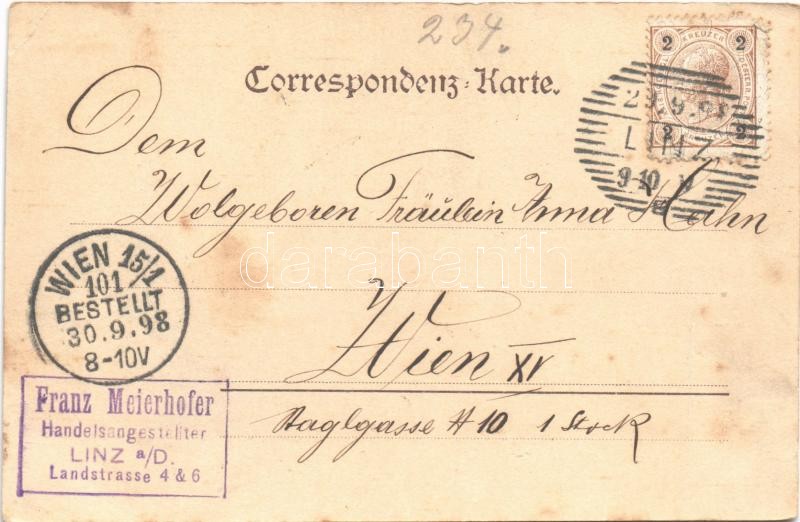 234.
Correspondenz-Karte.
2 KREUZER 2
2 2
29.9.98
LINZ
9-10 V
Dem
Wolgeboren Fräulein Anna Hahn
darabanth
WIEN 15/1
101
BESTELLT
30.9.98
8-10V
Wien XV
Staglgasse # 10 1 Stock
Franz Meierhofer
Handelsangestellter
LINZ a/D.
Landstrasse 4 & 6